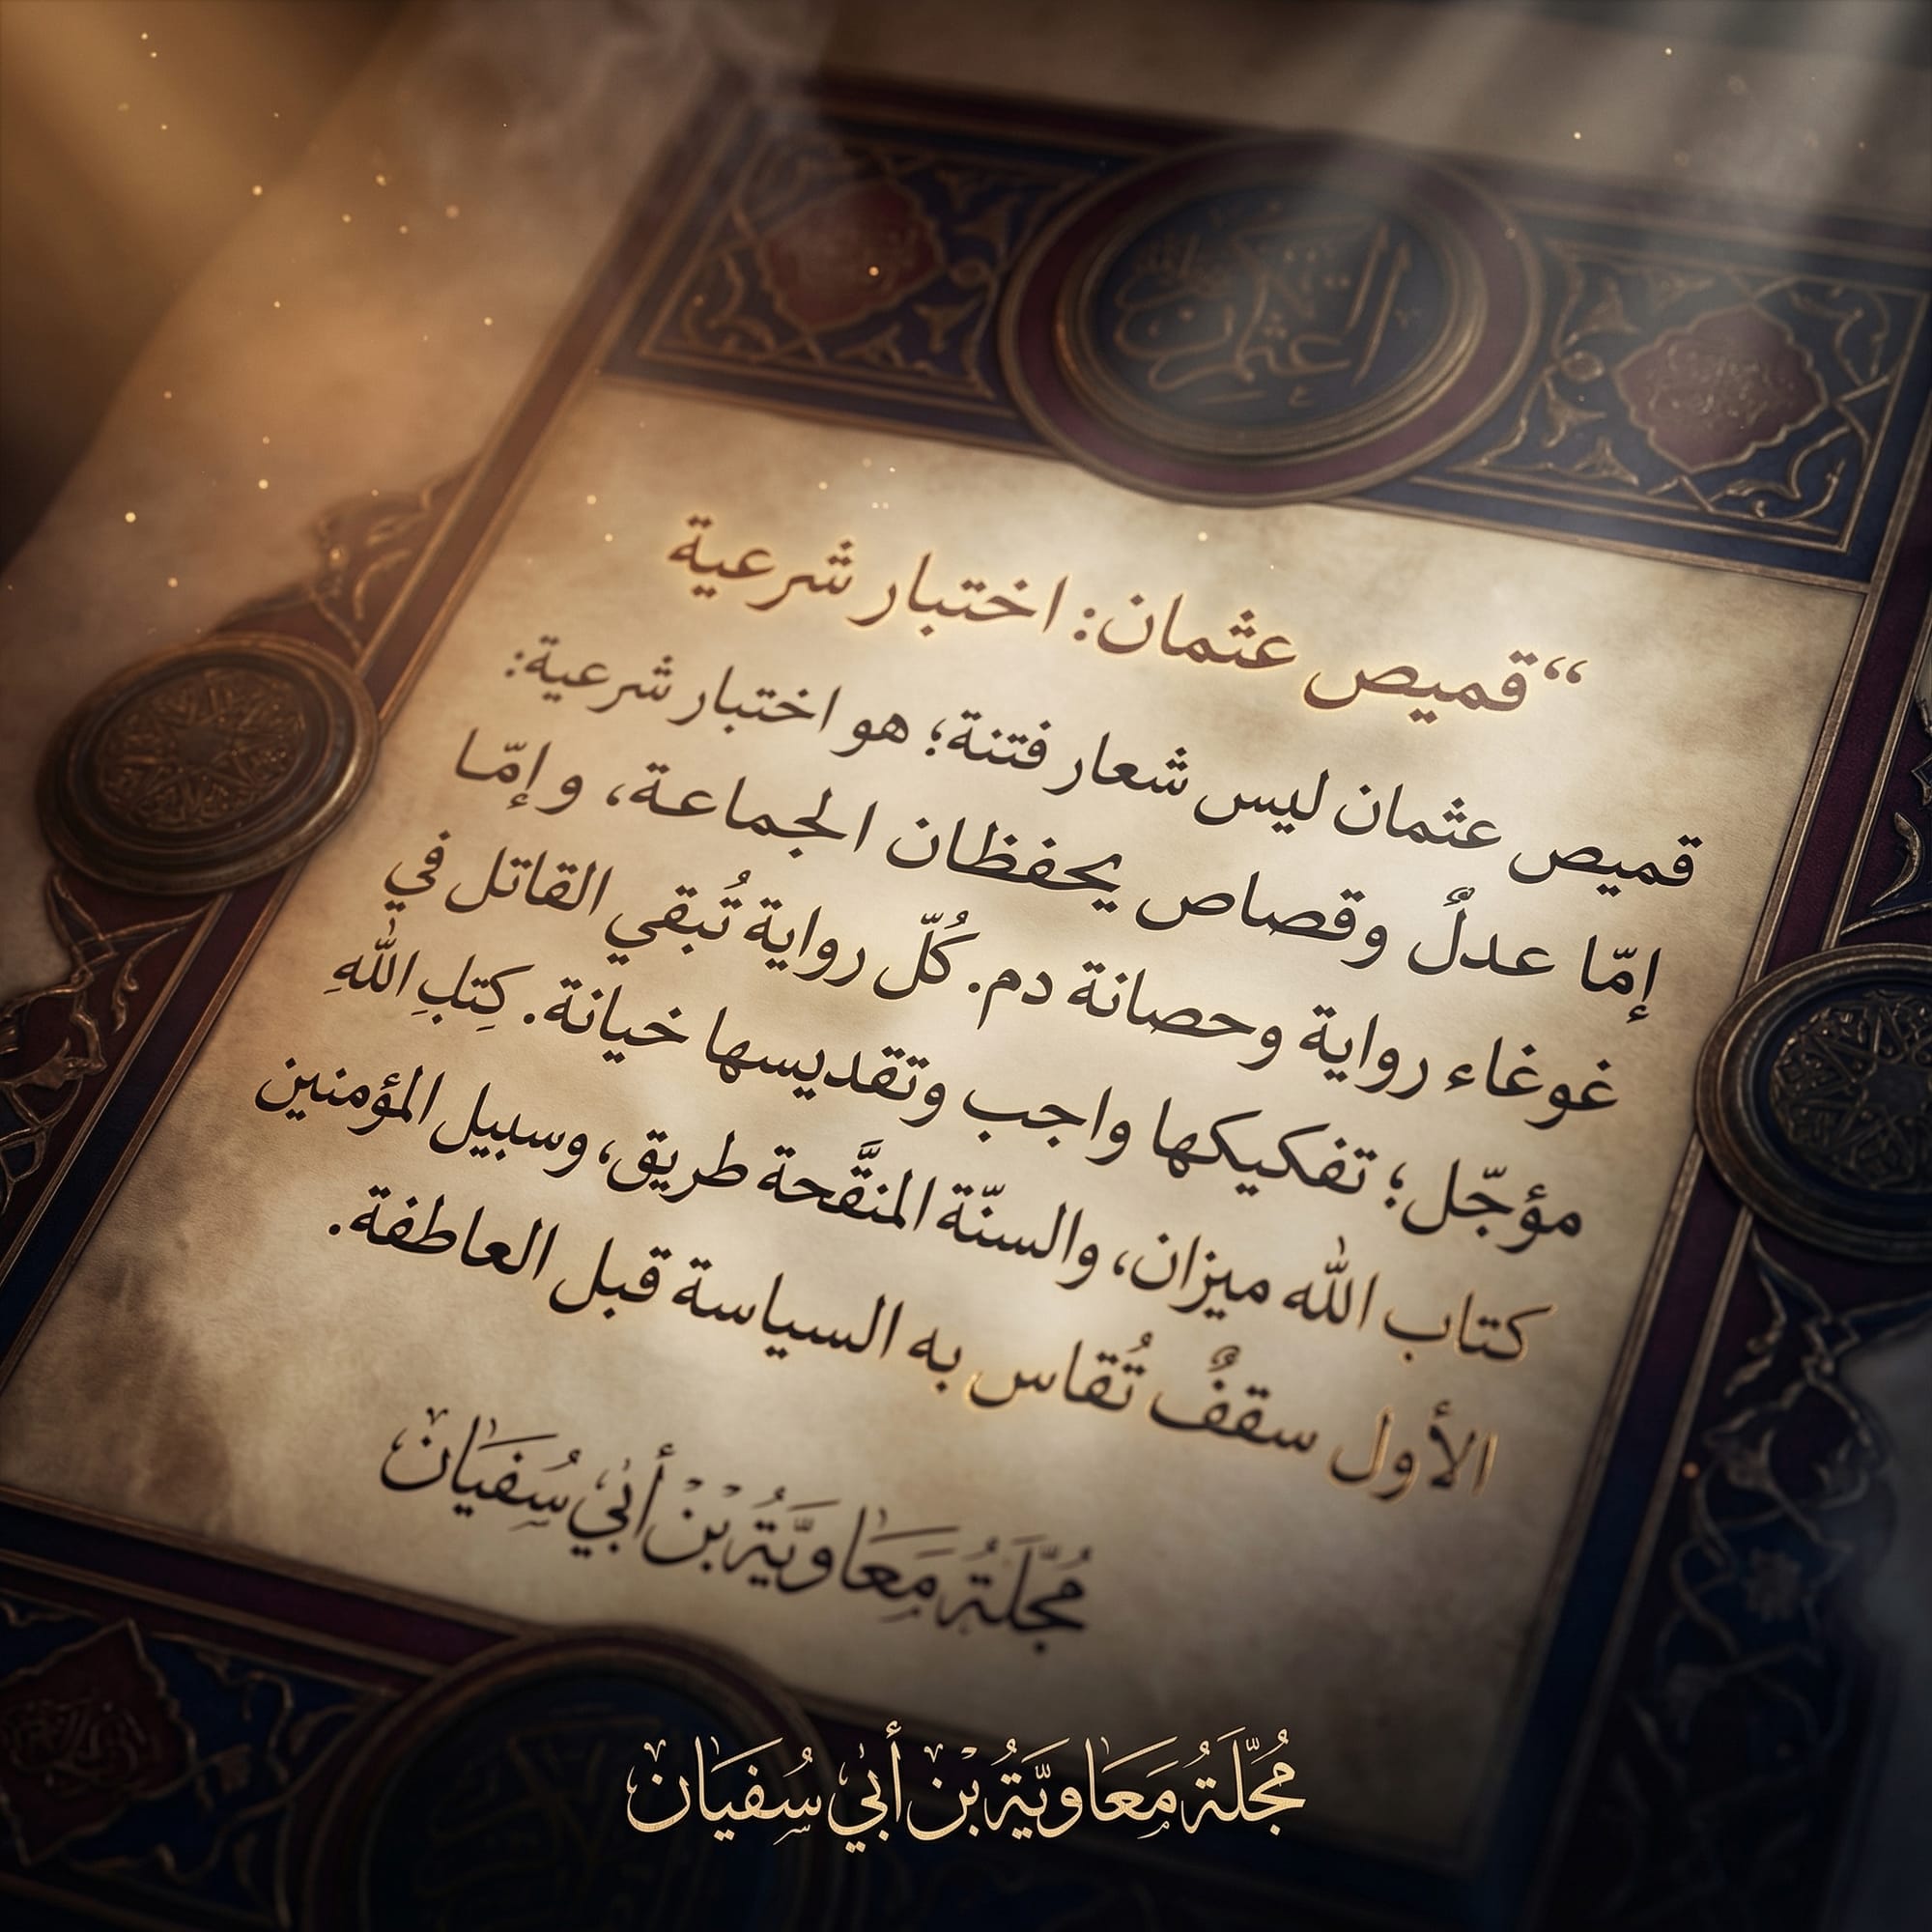 “قميص عثمان: اختبار شرعية
قميص عثمان ليس شعار فتنة؛ هو اختبار شرعية:
إمّا عدلٌ وقصاص يحفظان الجماعة، وإمّا
غوغاء رواية وحصانة دم. كُلّ رواية تُبقي القاتل في
مؤجّل؛ تفكيكها واجب وتقديسها خيانة. كِتٰبِ اللّٰهِ
كتاب اللّٰه ميزان، والسنّة المنقَّحة طريق، وسبيل المؤمنين
الأول سقفٌ تُقاس به السياسة قبل العاطفة.
مُجَلّةُ مَعَاويَّةُ بْن أَبي سُفيَانْ
مُجَلّةُ مَعَاويَّةُ بْن أَبي سُفيَانْ